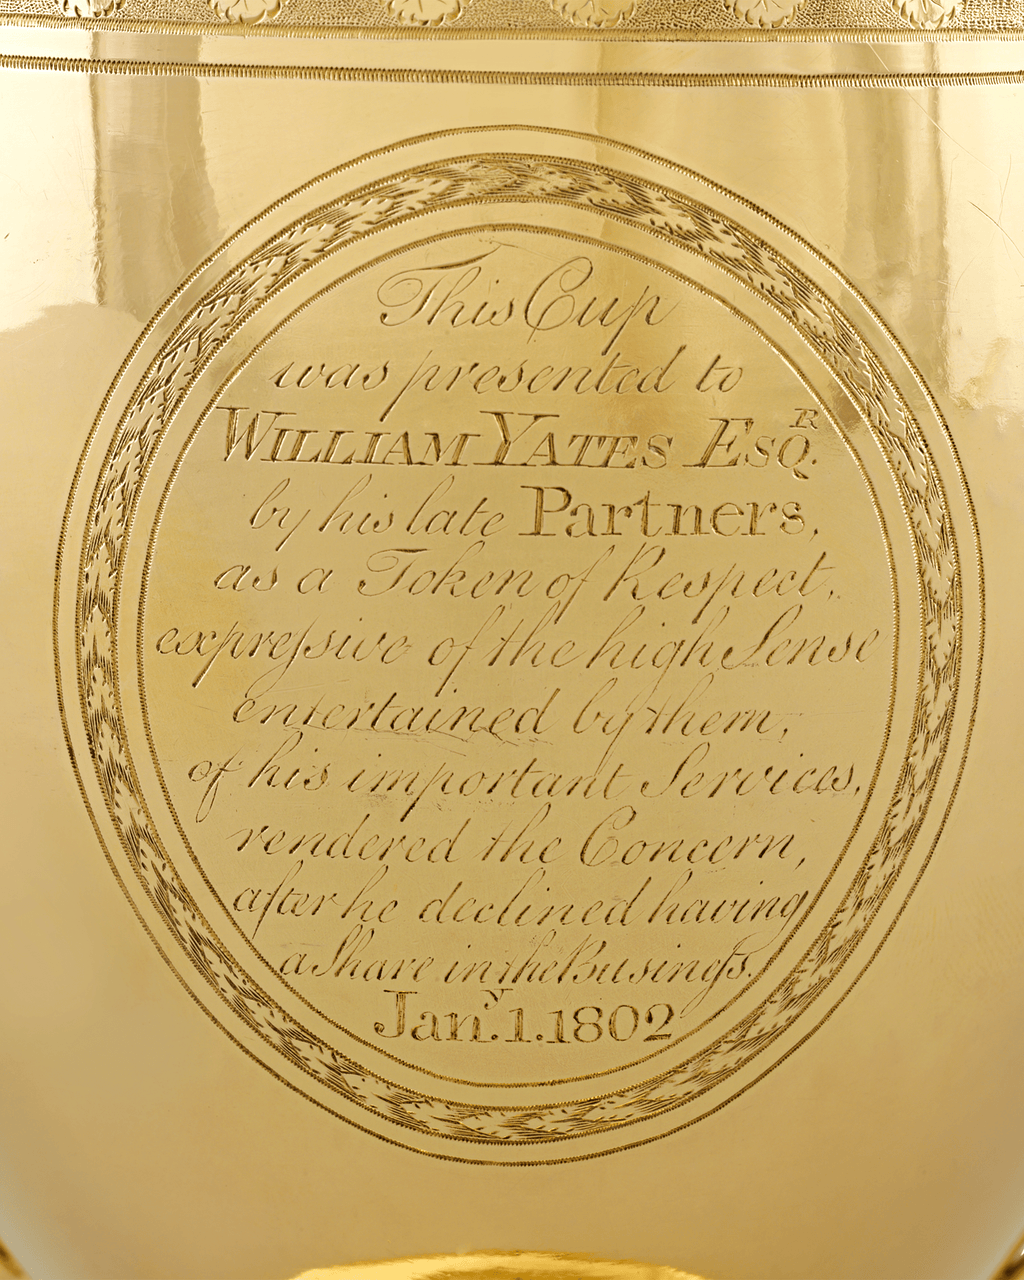 This Cup
was presented to
WILLIAM YATES ESQ^R.
by his late Partners,
as a Token of Respect,
expreſsive of the high Sense
entertained by them,
of his important Services,
rendered the Concern,
after he declined having
a Share in the Busineſs.
Jan^y. 1. 1802